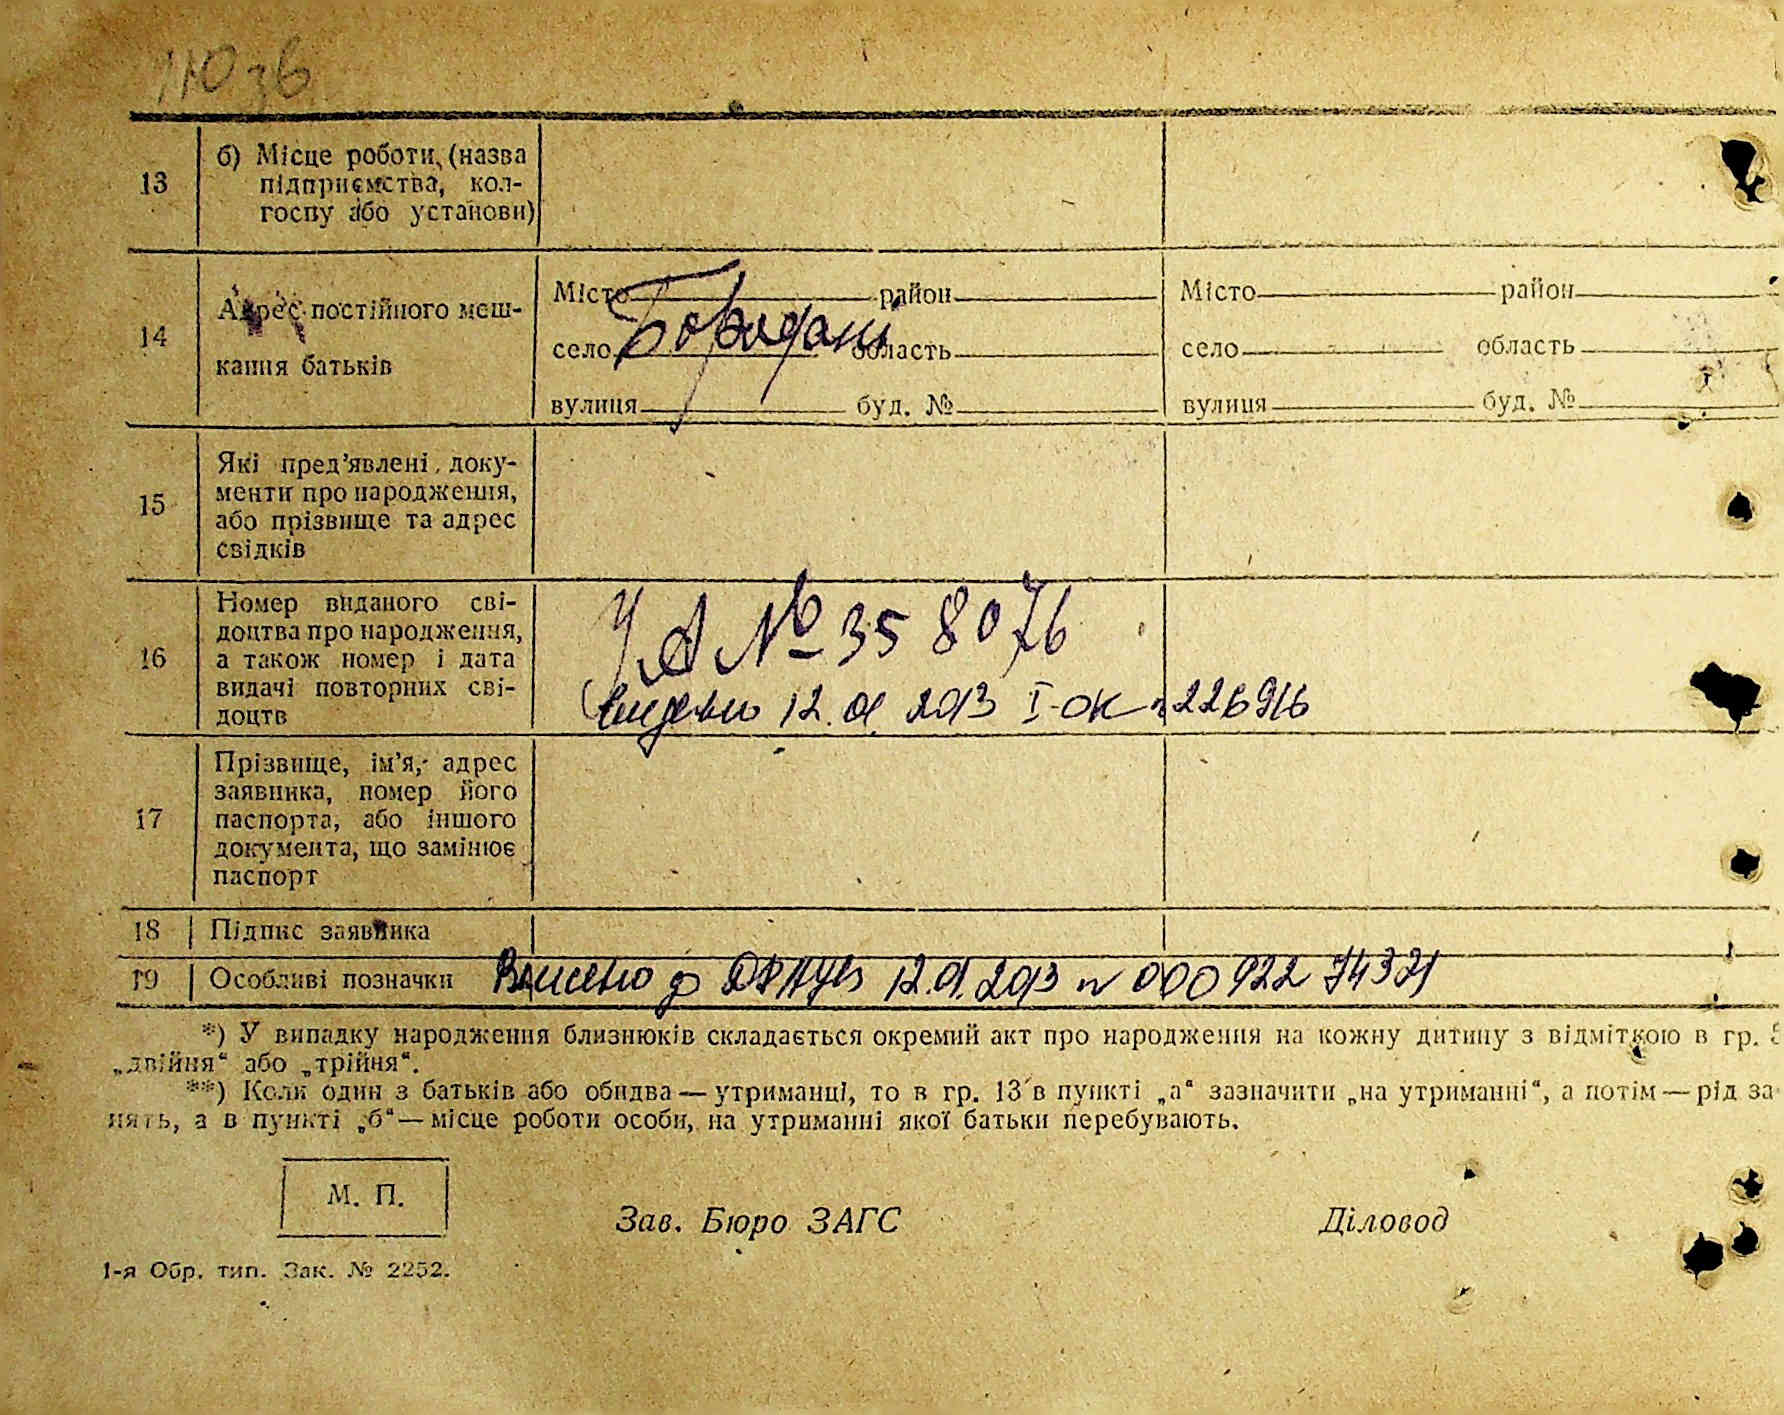 13
б) Місце роботи, (назва
підприємства, кол-
госпу або установи)
14
Адрес постійного меш-
кання батьків
Місто район Місто район
село область село область
вулиця буд. № вулиця буд. №
15
Які пред’явлені доку-
менти про народження,
або прізвище та адрес
свідків
16
Номер виданого сві-
доцтва про народження,
а також номер і дата
видачі повторних сві-
доцтв
УА № 358076
видано 12.01.2013 І-ОК № 226916
17
Прізвище, ім’я, адрес
заявника, номер його
паспорта, або іншого
документа, що замінює
паспорт
18 Підпис заявника
19 Особливі позначки
Внесено до ДРАЦСГ 12.01.2013 № 000 922 74321
*) У випадку народження близнюків складається окремий акт про народження на кожну дитину з відміткою в гр. 5
„двійня“ або „трійня“.
**) Коли один з батьків або обидва — утриманці, то в гр. 13 в пункті „а“ зазначити „на утриманні“, а потім — рід за-
нять, а в пункті „б“ — місце роботи особи, на утриманні якої батьки перебувають.
М. П.
Зав. Бюро ЗАГС Діловод
1-я Обр. тип. Зак. № 2252.